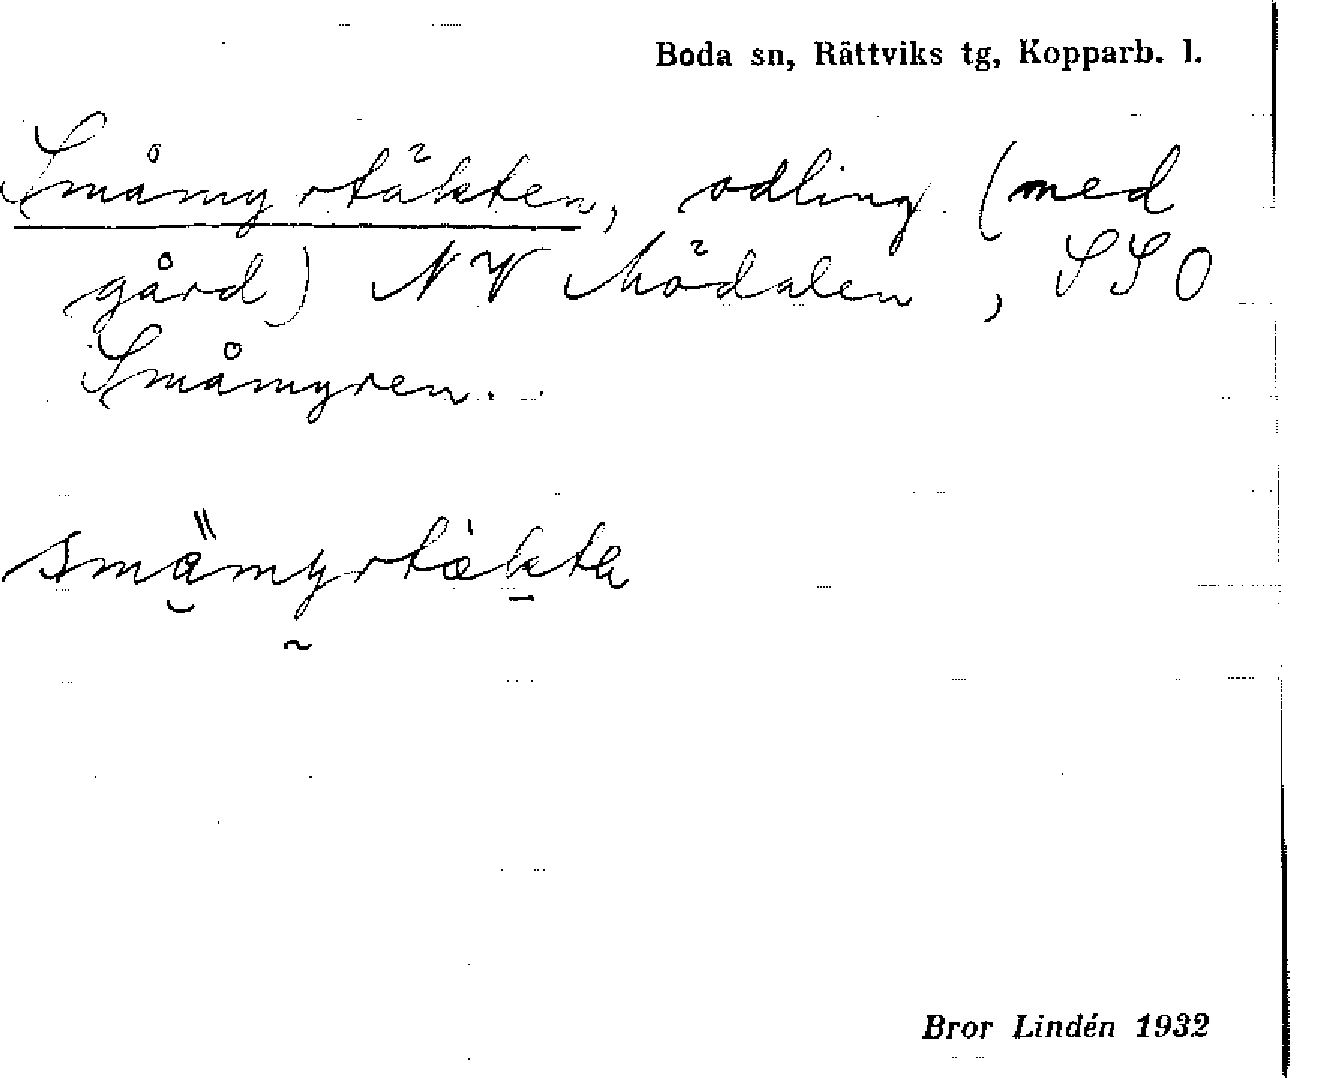 Boda sn, Rättviks tg, Kopparb. l.
Småmyrtäkten, odling (med
gård) NV Mödalen, SSO
Småmyren.
smämyrtäkta
Bror Lindén 1932